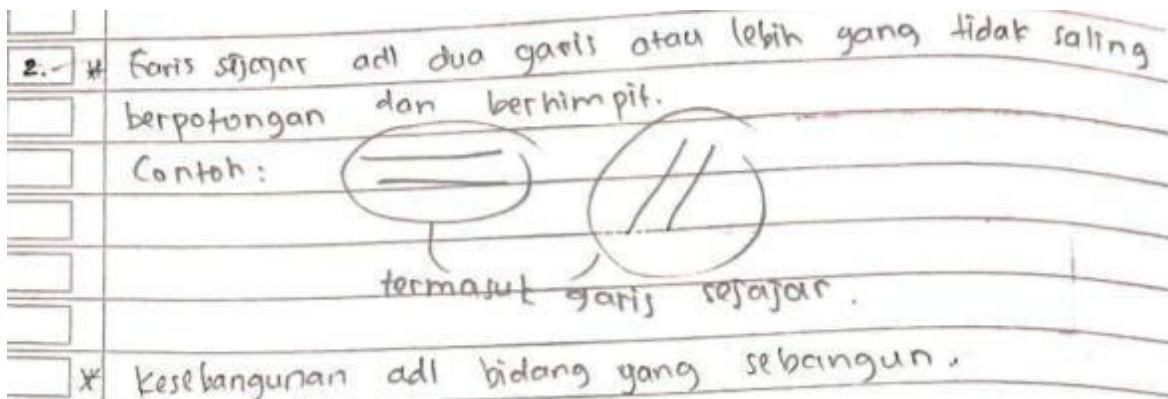 2.- * Garis sejajar adl dua garis atau lebih yang tidak saling
berpotongan dan berhimpit.
Contoh:
termasuk garis sejajar.
* Kesebangunan adl bidang yang sebangun.